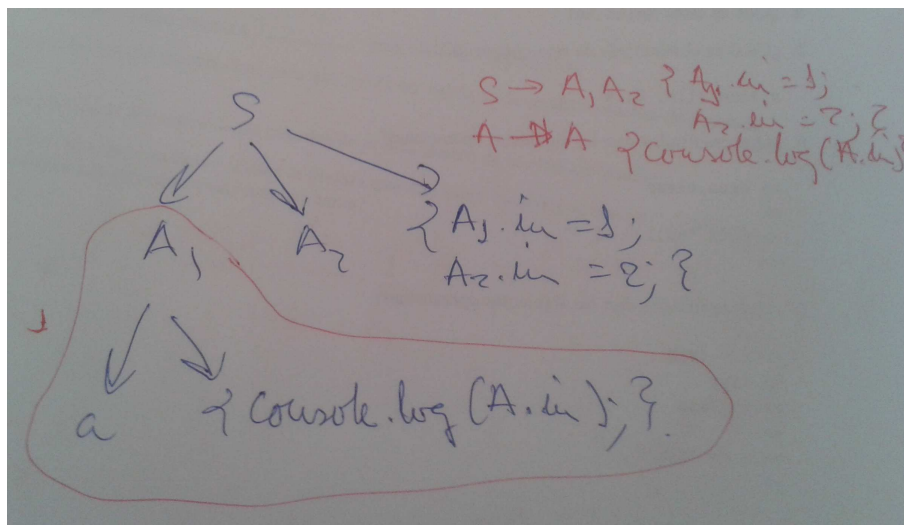 S → A₁ A₂ { A₁.in = 1;
A₂.in = 2; }
A → A { console.log(A.in)
S
A₁ A₂ { A₁.in = 1;
A₂.in = 2; }
1
a { console.log(A.in); }.